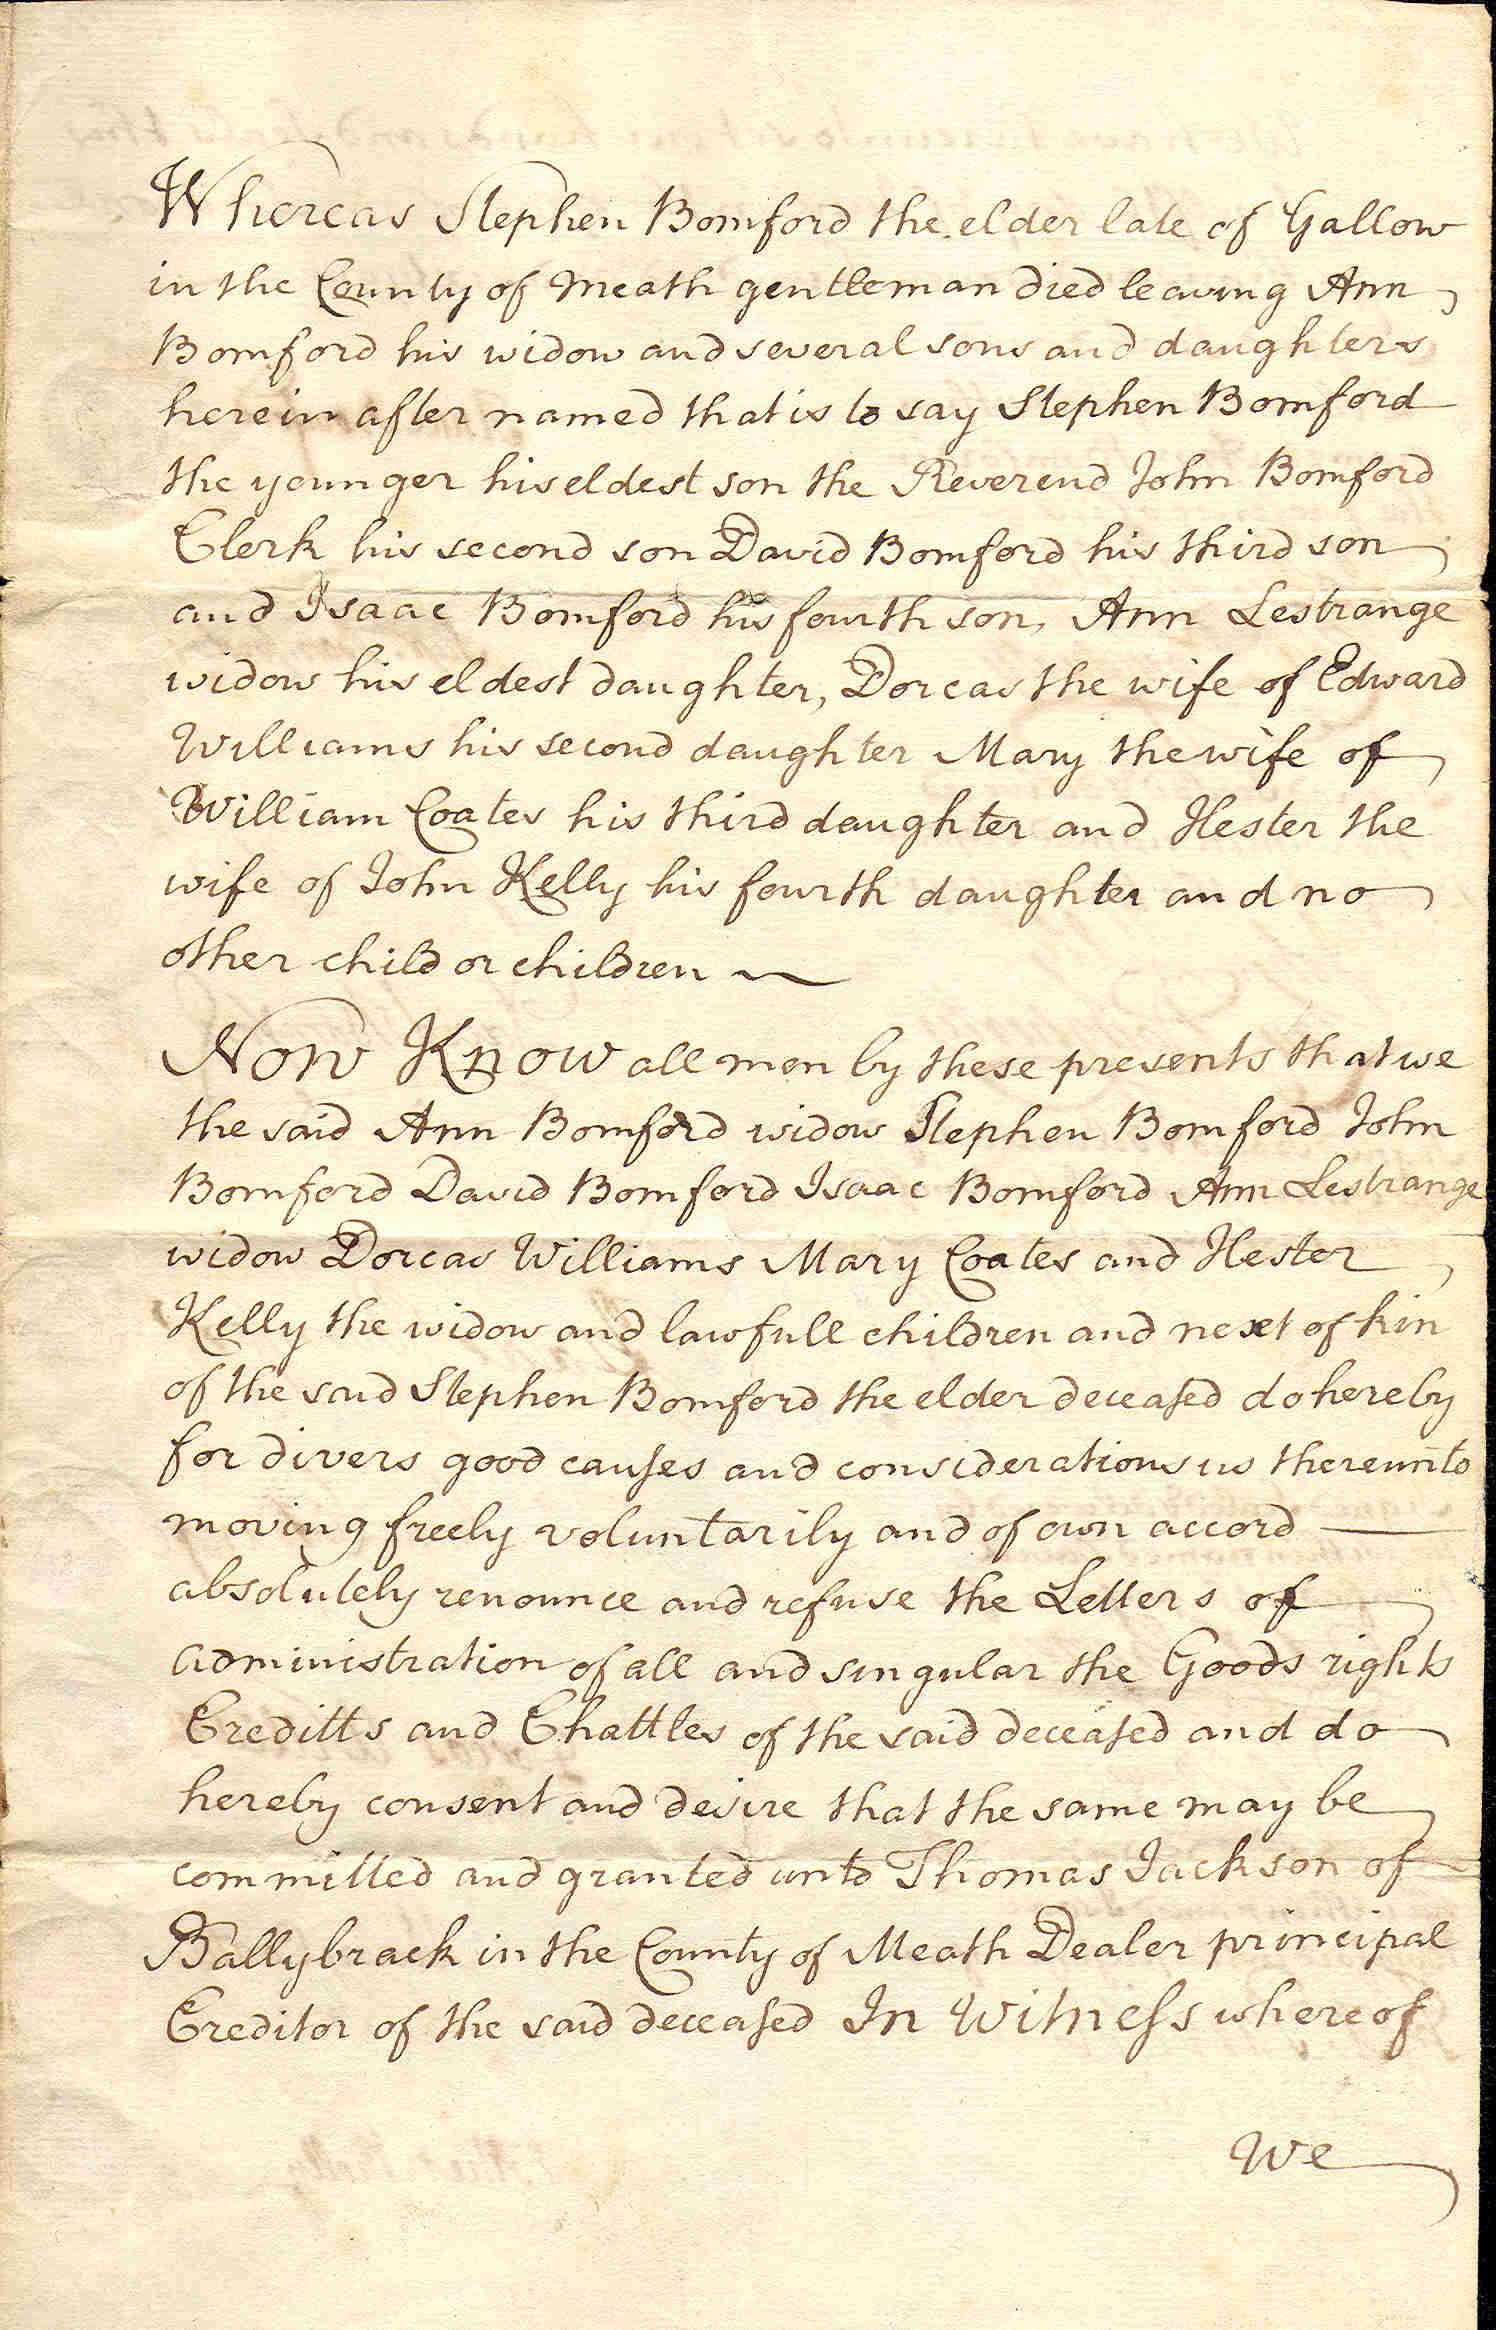 Whereas Stephen Bomford the elder late of Gallow
in the County of Meath gentleman died leaving Ann
Bomford his widow and several sons and daughters
herein after named that is to say Stephen Bomford
the younger his eldest son the Reverend John Bomford
Clerk his second son David Bomford his third son
and Isaac Bomford his fourth son, Ann Lestrange
widow his eldest daughter, Dorcas the wife of Edward
Williams his second daughter Mary the wife of
William Coates his third daughter and Hester the
wife of John Kelly his fourth daughter and no
other child or children
Now Know all men by these presents that we
the said Ann Bomford widow Stephen Bomford John
Bomford David Bomford Isaac Bomford Ann Lestrange
widow Dorcas Williams Mary Coates and Hester
Kelly the widow and lawfull children and next of kin
of the said Stephen Bomford the elder deceased do hereby
for divers good causes and considerations us thereunto
moving freely voluntarily and of own accord
absolutely renounce and refuse the Letters of
administration of all and singular the Goods rights
Creditts and Chattles of the said deceased and do
hereby consent and desire that the same may be
committed and granted unto Thomas Jackson of
Ballybrack in the County of Meath Dealer principal
Creditor of the said deceased In Witness whereof
We